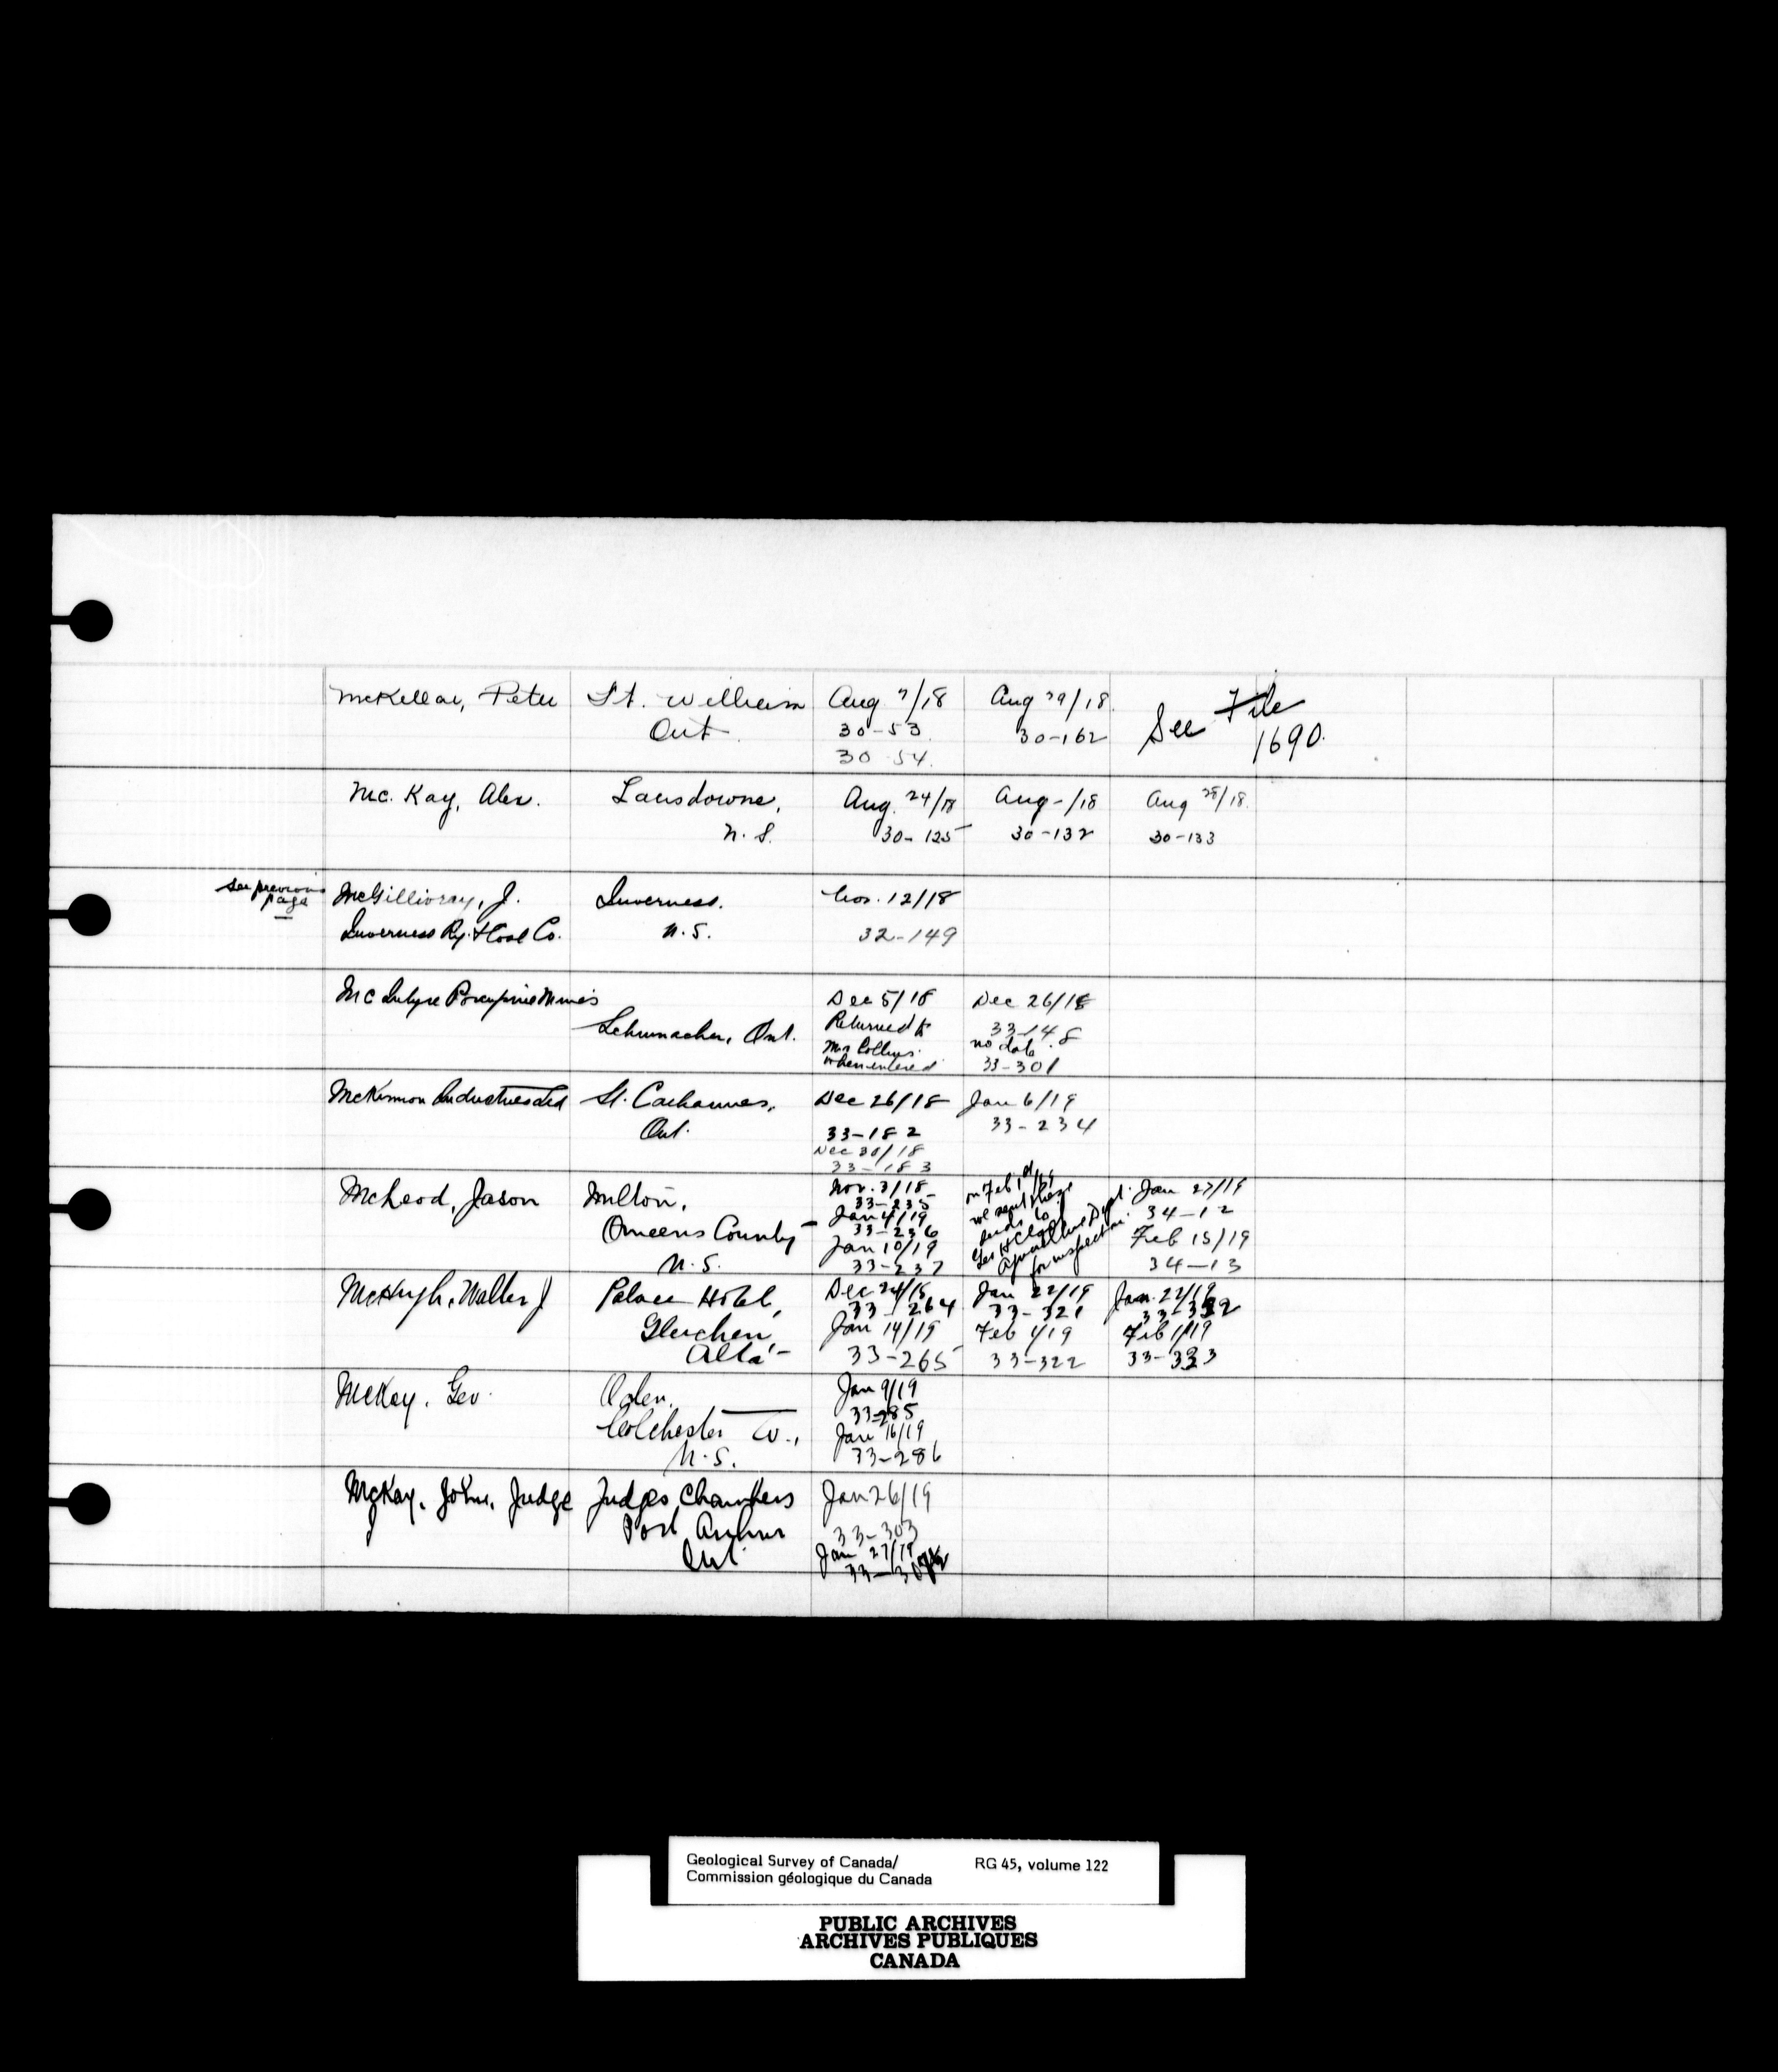 McKellar, Peter
Ft. William
Ont.
Aug 7/18
30-53
30 54.
Aug 29/18.
30-162
See File
1690.
Mc. Kay, Alex.
Lansdowne,
N. S.
Aug. 24/18
30-125
Aug -/18
30-132
Aug 28/18.
30-133
See previous
page
McGillivray, J.
Inverness Ry. & Coal Co.
Inverness.
N. S.
Nov. 12/18
32-149
McIntyre Porcupine Mines
Schumacher, Ont.
Dec 5/18
Returned to
Mr. Collins
when entered
Dec 26/18
33-148
no date.
33-301
McKinnon Industries Ltd
St. Catharines,
Ont.
Dec 26/18
33-182
Dec 30/18
33-183
Jan 6/19
33-234
McLeod, Jason
Milton,
Queens County
N. S.
Nov. 3/18
33-235
Jan 4/19
33-236
Jan 10/19
33-237
on Feb
we sent these
to
Geo H Clark
Dept.
for inspection.
Jan 27/19
34-12
Feb 15/19
34-13
McHugh, Walter J
Palace Hotel,
Gleichen,
Alta
Dec 24/18
33-264
Jan 14/19
33-265
Jan 22/19
33-321
Feb 1/19
33-322
Jan. 22/19
Feb 1/19
33-323
McKay, Geo.
Colchester Co.,
N. S.
Jan 9/19
33-285
Jan 16/19
33-286
McKay, John, Judge
Judges Chambers
Port Arthur
Ont
Jan 26/19
33-303
Jan 27/19
Geological Survey of Canada/
Commission géologique du Canada
RG 45, volume 122
PUBLIC ARCHIVES
ARCHIVES PUBLIQUES
CANADA